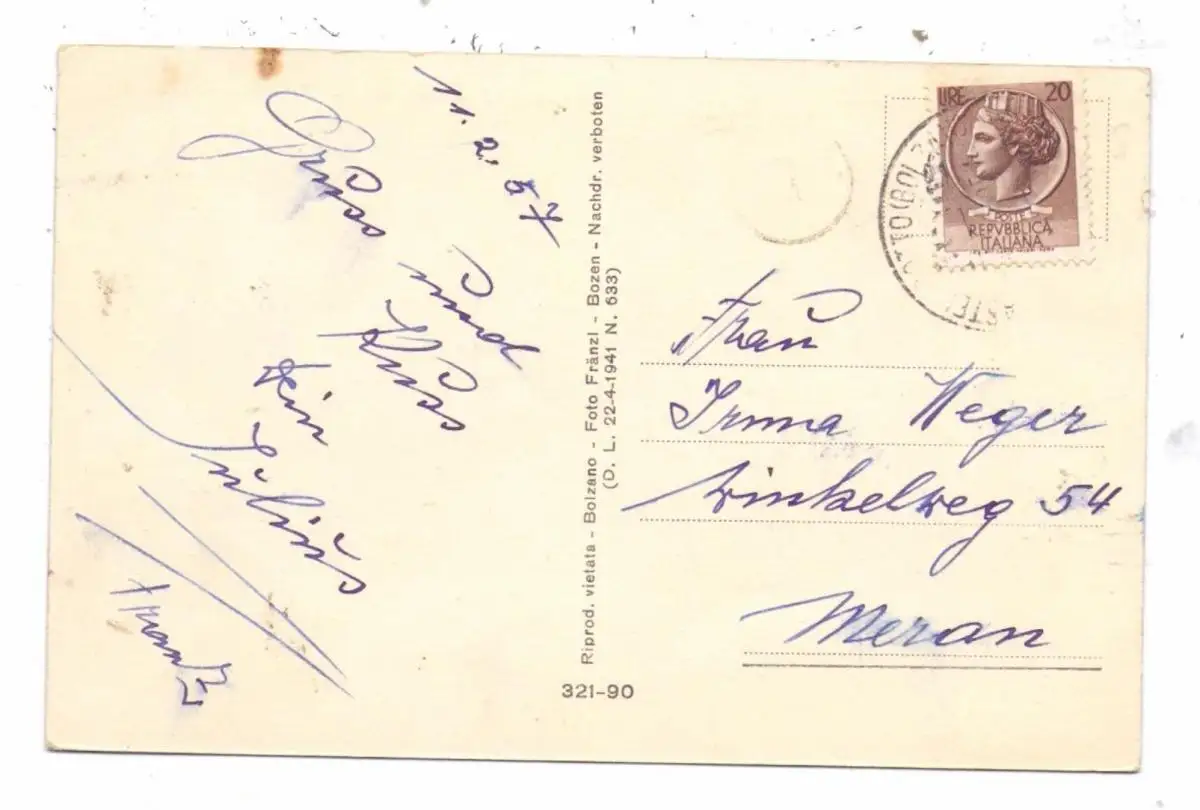 11. 2. 57
Gruss
und
Kuss
Dein
Julius
Franz
Riprod. vietata - Bolzano - Foto Fränzl - Bozen - Nachdr. verboten
(D. L. 22-4-1941 N. 633)
321-90
LIRE 20
POSTE
REPVBBLICA
ITALIANA
Frau
Irma Weger
Winkelweg 54
Meran